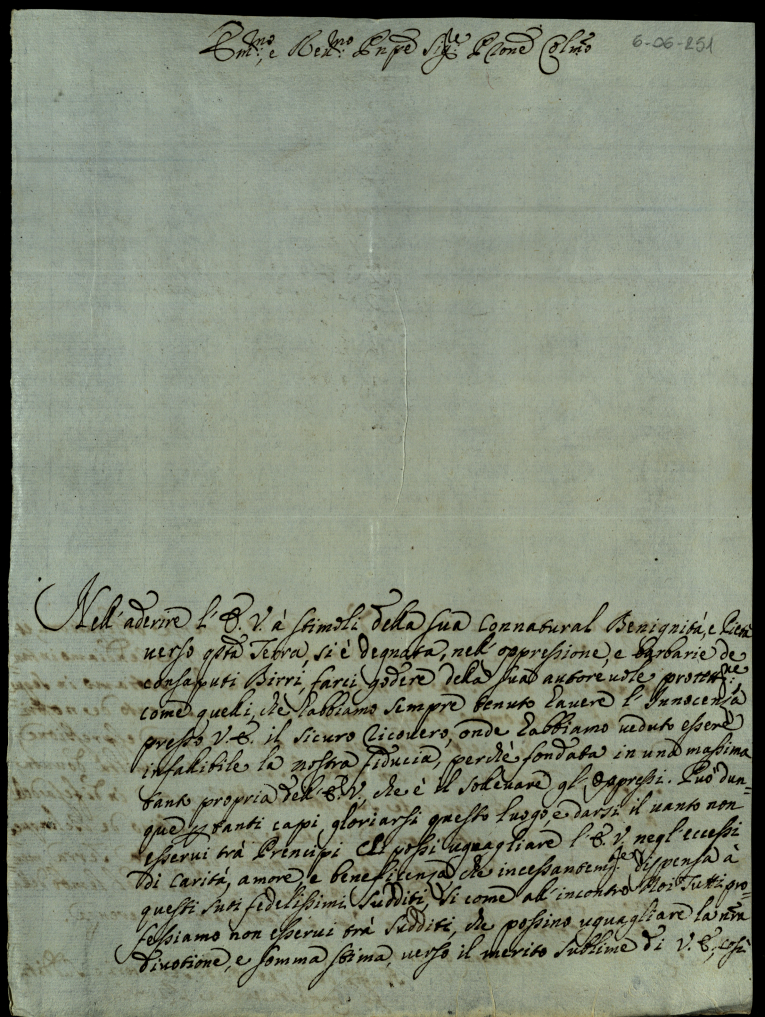 Em:mo, e Reu:mo Pnpe Sig:re Prone Colmo
6-06-251
Nell'aderire l'E.V. à stimoli della sua Connatural Benignità, e Pietà
uerso qsta Terra, si è degnata, nell'oppressione, e barbarie de
consaputi Birri, farci godere della sua autoreuole protett:ne
come quelli, che habbiamo sempre tenuto hauere l'Innocenza
presso V.E. il sicuro ricouero, onde habbiamo ueduto essere
infallibile la nostra fiducia, perche fondata in una massima
tanto propria dell'E.V., che è il solleuare gl'oppressi. Può dun=
que p tanti capi gloriarsi questo luogo e darsi il uanto non
esserui trà Principi chi possi uguagliare l'E.V. negl'eccessi
di carità, amore, e beneficenza che incessantem:te dispensa à
questi suoi fedelissimi Sudditi, si come all'incontro Noi Tutti pro=
fessiamo non esserui trà Sudditi, che possino uguagliare la nra
diuotione, e somma stima, uerso il merito sublime di V.E., così